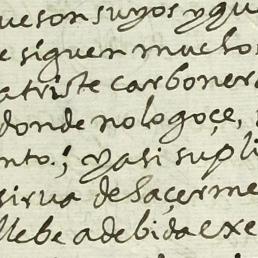 ueson suyos yqu
e siguen muchos
atriste carbonera
donde nologoçe,
nto.; yasi supli
sirua dehaçerme
llebe adebidaexe